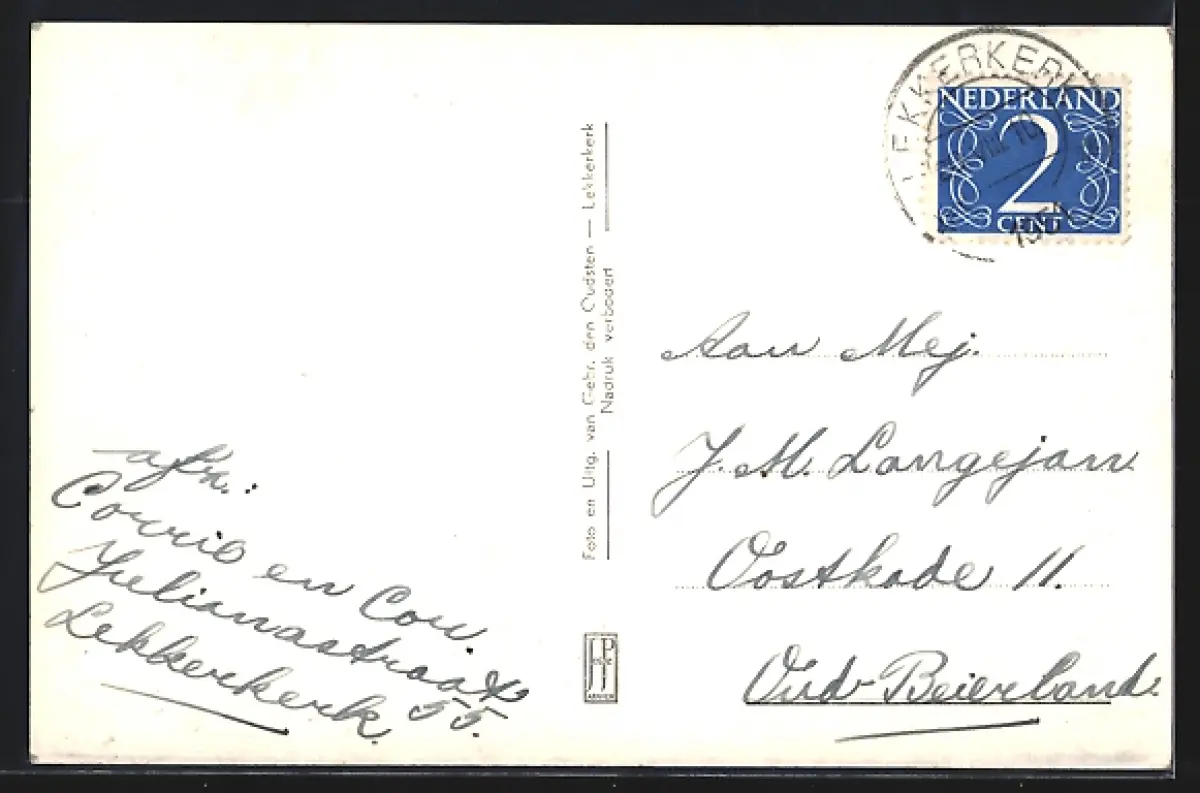 LEKKERKERK
VIII 10
1951
NEDERLAND
2
CENT
Foto en Uitg. van Gebr. den Oudsten — Lekkerkerk
Nadruk verboden
Aan Mej.
J. M. Langejan.
Oostkade 11.
Oud-Beierland.
afz.:
Corrie en Cor.
Julianastraat 55.
Lekkerkerk.